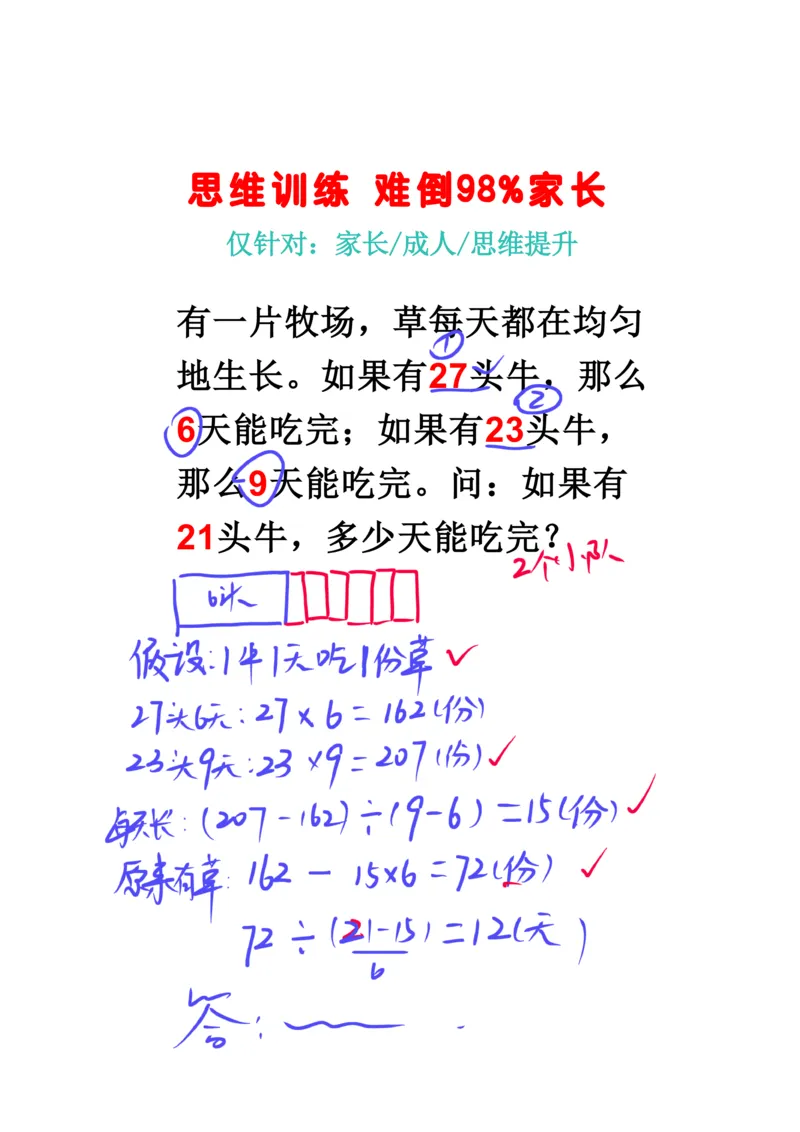 思维训练 难倒98%家长
仅针对：家长/成人/思维提升
有一片牧场，草每天都在均匀
①
地生长。如果有27头牛，那么
②
6天能吃完；如果有23头牛，
那么9天能吃完。问：如果有
21头牛，多少天能吃完？
2个小队
6头
假设：1牛1天吃1份草
27头6天：27×6=162(份)
23头9天：23×9=207(份)
每天长：(207-162)÷(9-6)=15(份)
原来有草：162-15×6=72(份)
72÷(21-15)=12(天)
6
答：